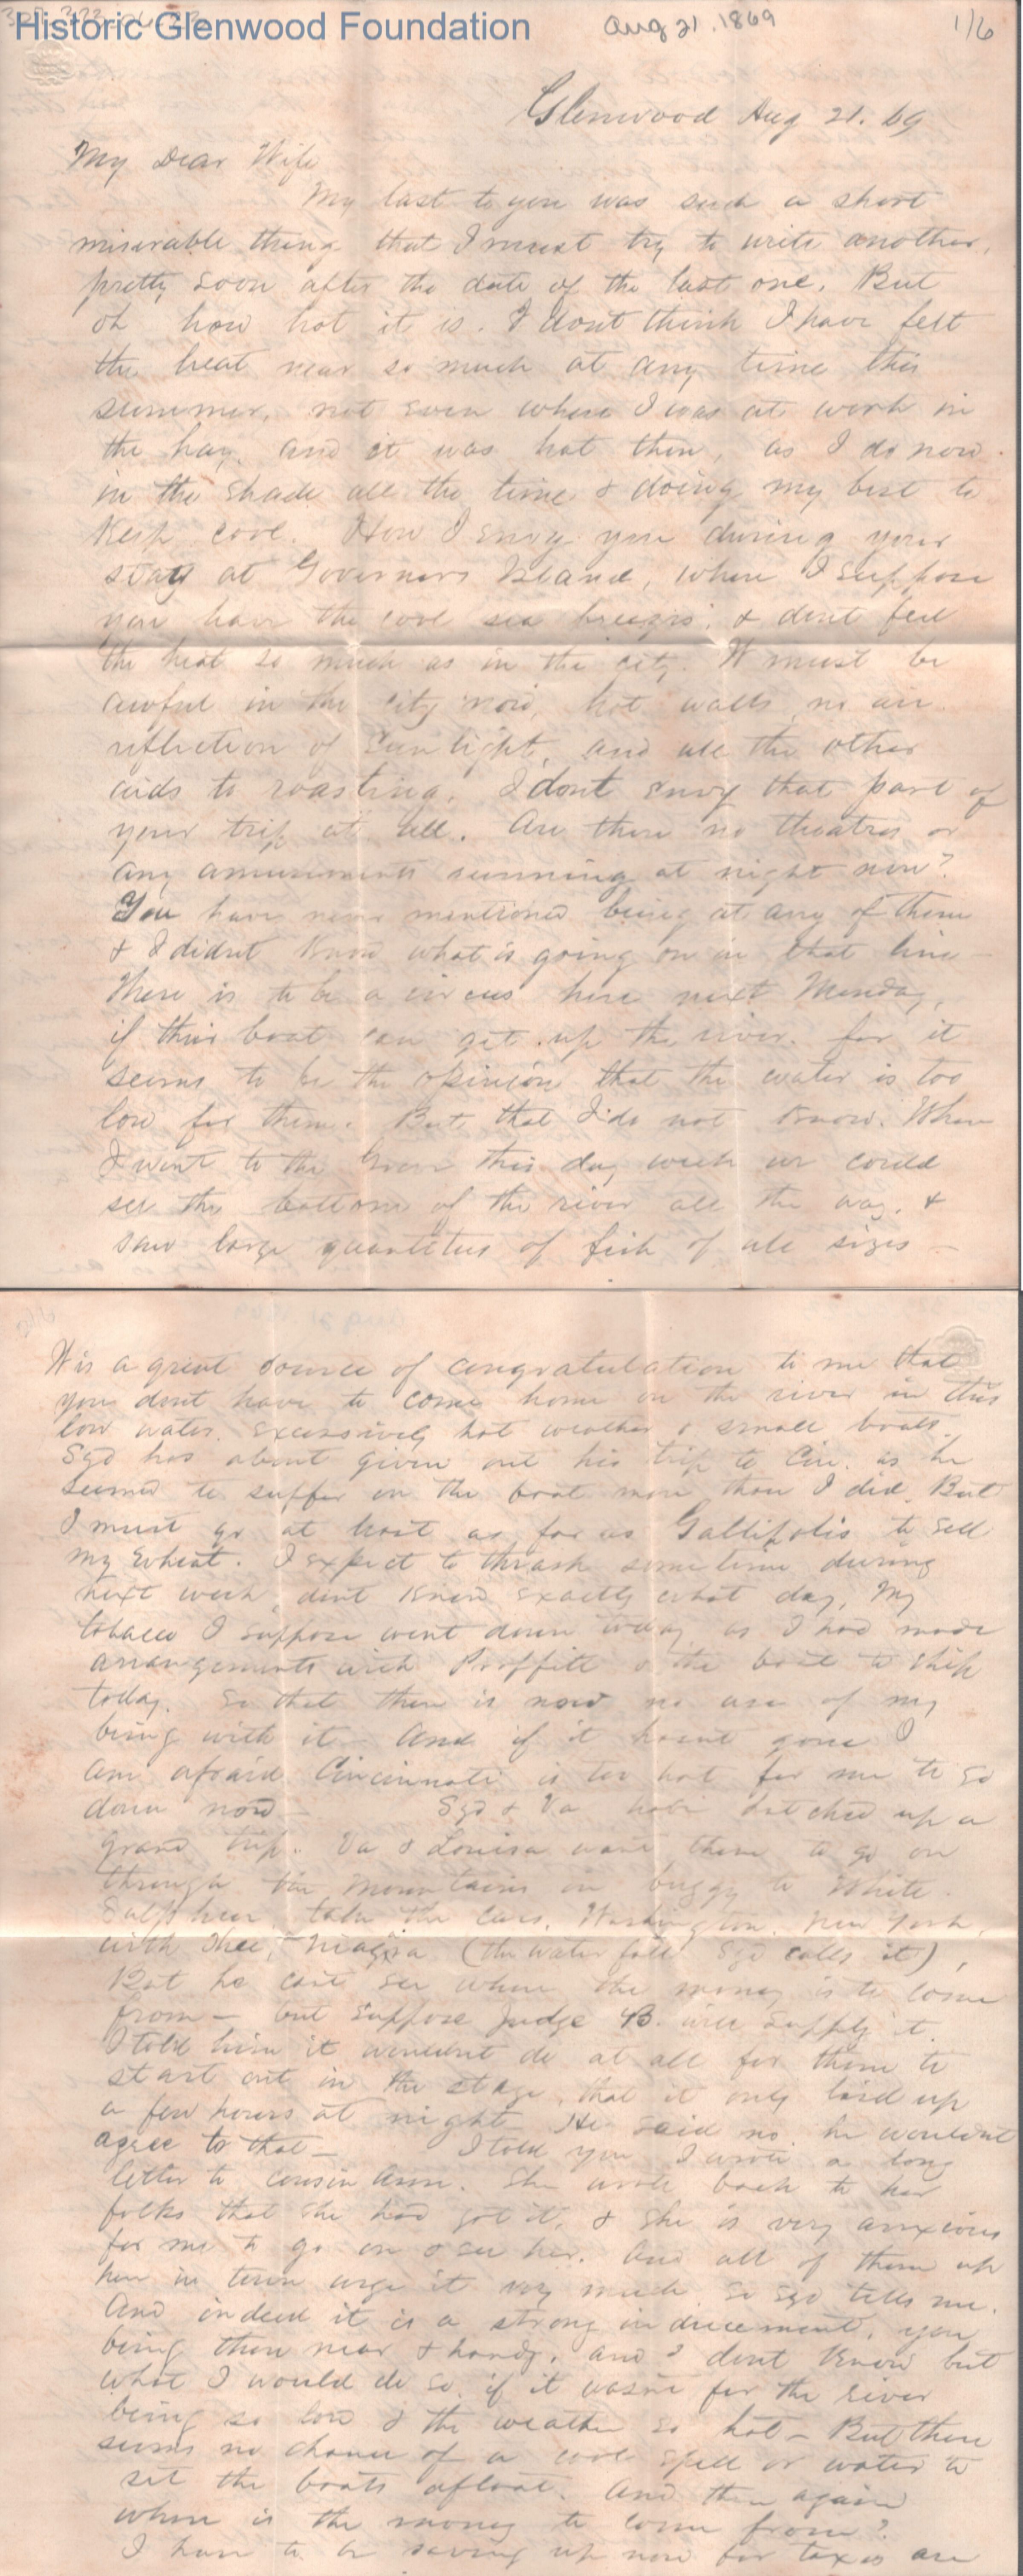 Historic Glenwood Foundation
Aug 21. 1869
1/6
Glenwood Aug 21. 69
My Dear Wife
My last to you was such a short
miserable thing that I must try to write another,
pretty soon after the date of the last one. But
oh how hot it is. I dont think I have felt
the heat near so much at any time this
summer, not even when I was at work in
the hay, and it was hot then, as I do now
in the shade all the time & doing my best to
keep cool. How I envy you during your
stay at Governors Island, where I suppose
you have the cool sea breezes, & dont feel
the heat so much as in the city. It must be
awful in the city now, hot walls, no air
reflection of sun light, and all the other
aids to roasting. I dont envy that part of
your trip at all. Are there no theatres or
any amusements running at night now?
You have never mentioned being at any of them
& I didnt know what is going on in that line
There is to be a circus here next Monday,
if their boat can get up the river. for it
seems to be the opinion that the water is too
low for them. But that I do not know. When
I went to the Green this day week we could
see the bottom of the river all the way, &
saw large quantities of fish of all sizes —
It is a great source of congratulation to me that
you dont have to come home on the river in this
low water, excessively hot weather & small boats.
Syd has about given out his trip to Cin. as he
seemed to suffer on the boat more than I did. But
I must go at least as far as Gallipolis to sell
my wheat. I expect to thrash some time during
next week, dont know exactly what day, My
tobacco I suppose went down today as I had made
arrangements with Proffitt & the boat to ship
today. So that there is now no use of my
being with it — And if it hasnt gone I
am afraid Cincinnati is too hot for me to go
down now — Syd & Va have hatched up a
grand trip. Va & Louisa want them to go on
through the mountains in buggy to White
Sulphur, take the cars, Washington, New York,
with thee, Niagra (the water fall Syd calls it),
But he cant see where the money is to come
from — but suppose Judge B. will supply it.
I told him it wouldnt do at all for them to
start out in the stage, that it only laid up
a few hours at night He said no he wouldnt
agree to that — I told you I wrote a long
letter to cousin Ann. She wrote back to her
folks that she had got it, & she is very anxious
for me to go on & see her. And all of them up
here in town urge it very much so Syd tells me.
And indeed it is a strong inducement, you
being there near & handy, and I dont know but
what I would do so, if it wasnt for the river
being so low & the weather so hot — But there
seems no chance of a cool spell or water to
set the boats afloat. And then again
where is the money to come from?
I have to be saving up now for taxes are